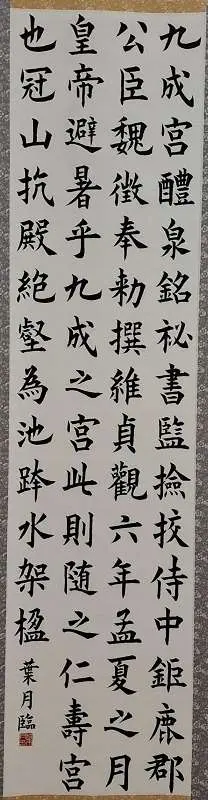 九成宮醴泉銘祕書監撿挍侍中鉅鹿郡
公臣魏徵奉勅撰維貞觀六年孟夏之月
皇帝避暑乎九成之宮此則随之仁壽宮
也冠山抗殿絶壑為池跨水架楹
葉月臨